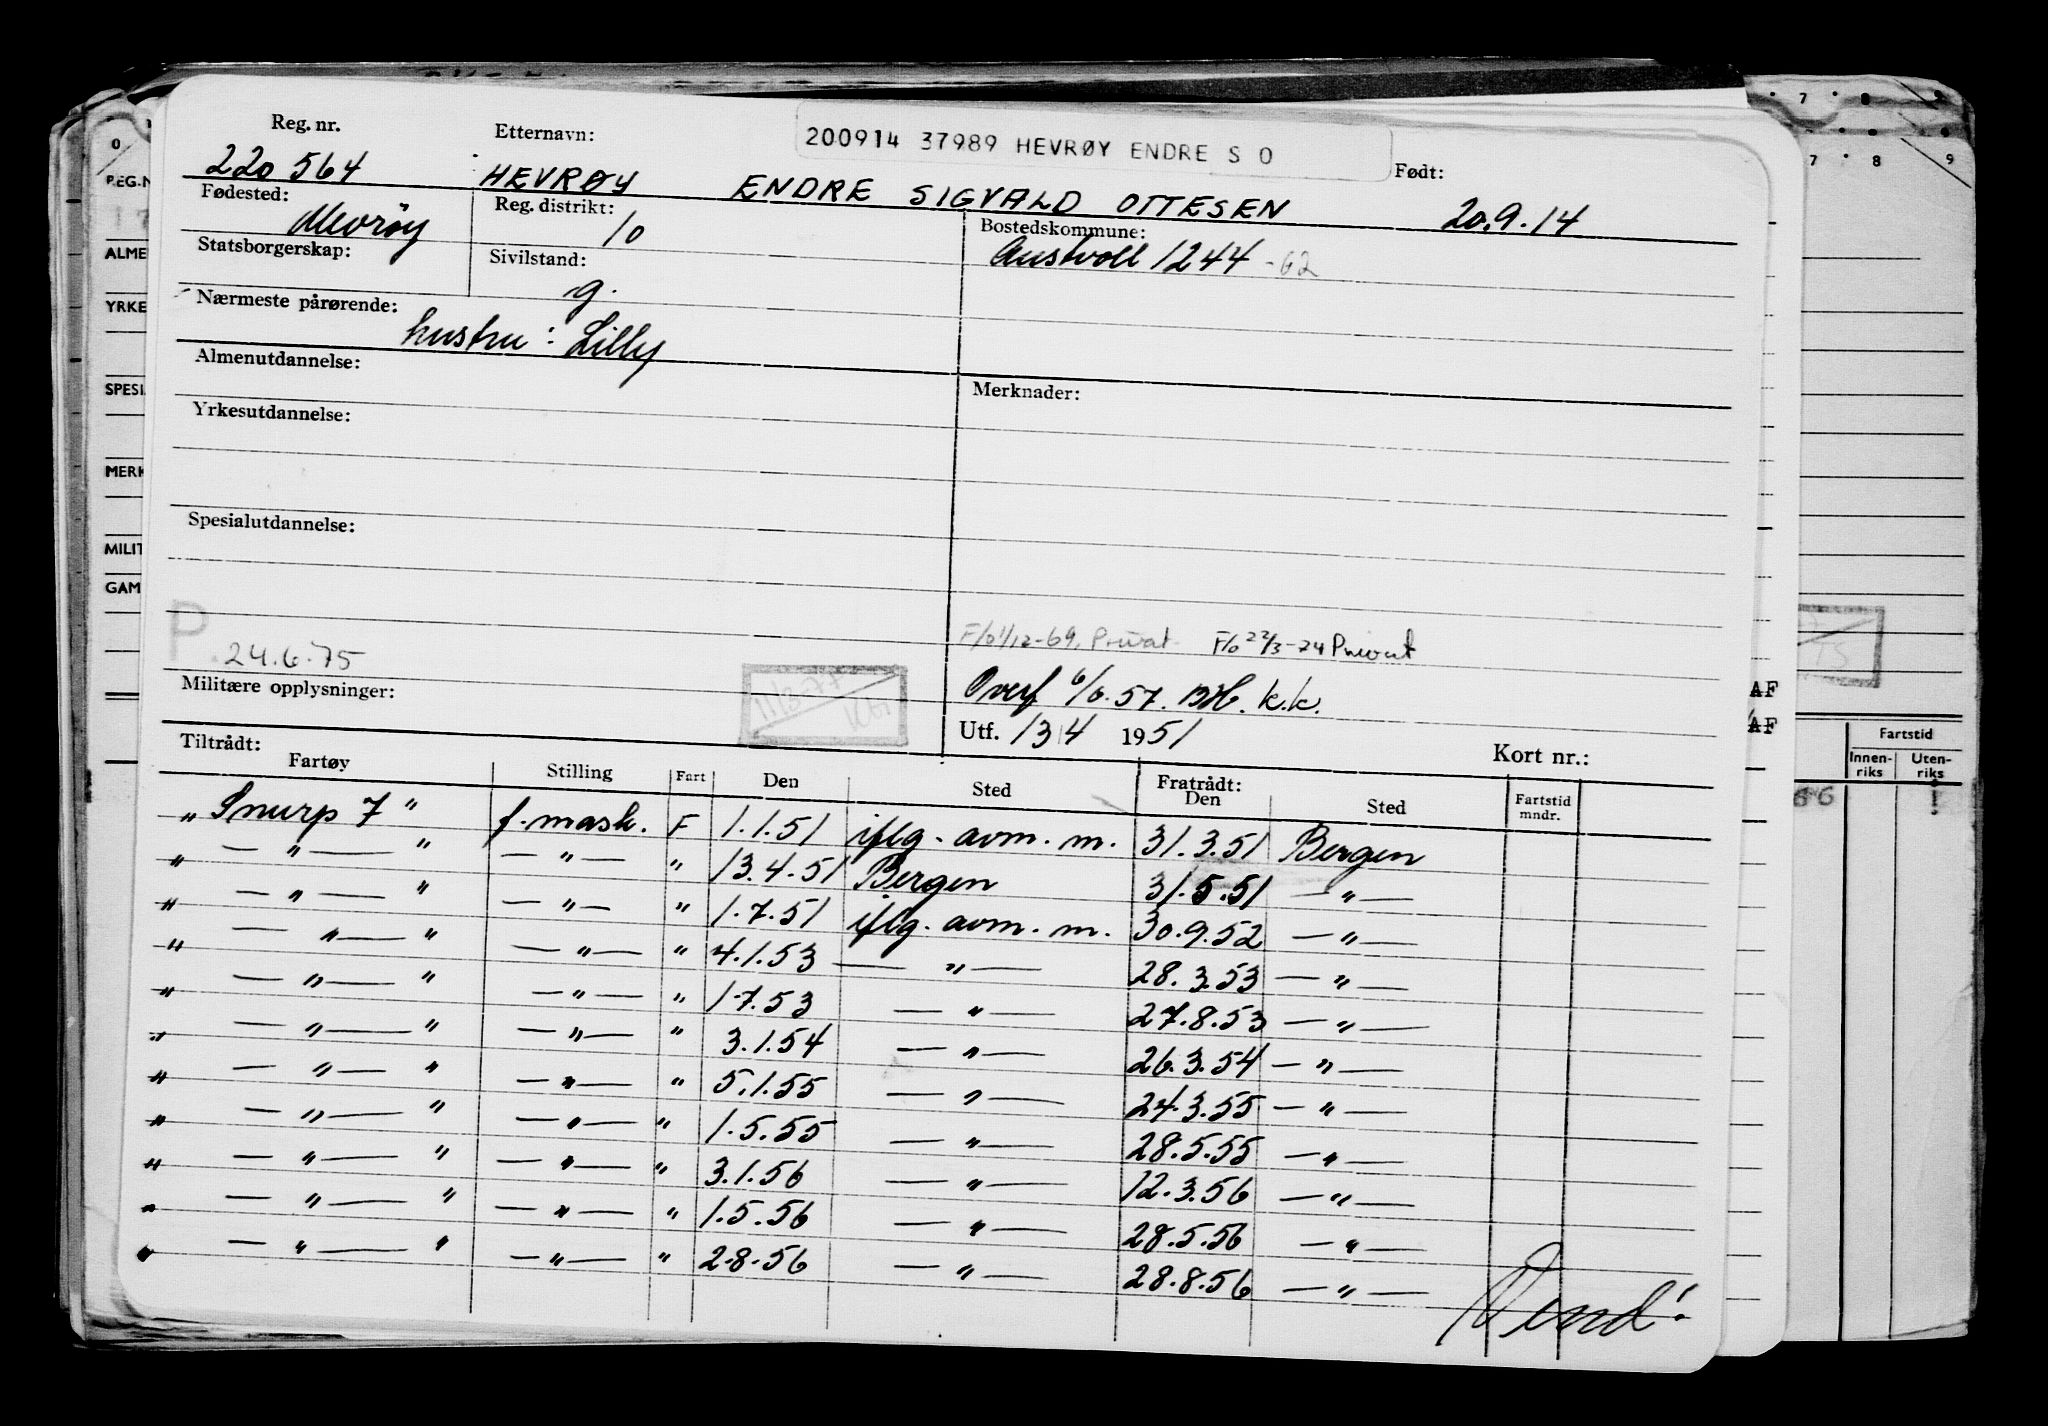 Reg. nr. Etternavn: 200914 37989 HEVRØY ENDRE S O Født:
220 564 HEVRØY ENDRE SIGVALD OTTESEN 20.9.14
Fødested: Reg. distrikt: Bostedskommune:
10 Austvoll 1244 -62
Statsborgerskap: Sivilstand:
g.
Nærmeste pårørende:
hustru: Lilly
Almenutdannelse: Merknader:
Yrkesutdannelse:
Spesialutdannelse:
P. 24.6.75
F/o 1/12-69. Privat F/o 22/3-74 Privat
Militære opplysninger:
11/3-77
Overf 6/6.57. k.k.
Utf. 13/4 1951 Kort nr.:
Tiltrådt: Fratrådt:
Fartøy Stilling Fart Den Sted Den Sted Fartstid mndr.
"Snurp 7" f. mask. F 1.1.51 iflg. avm. m. 31.3.51 Bergen
" — " — " — " — " 13.4.51 Bergen 31.5.51 — " —
" — " — " — " — " 1.7.51 iflg. avm. m. 30.9.52 — " —
" — " — " — " — " 4.1.53 — " — 28.3.53 — " —
" — " — " — " — " 1.7.53 — " — 27.8.53 — " —
" — " — " — " — " 3.1.54 — " — 26.3.54 — " —
" — " — " — " — " 5.1.55 — " — 24.3.55 — " —
" — " — " — " — " 1.5.55 — " — 28.5.55 — " —
" — " — " — " — " 3.1.56 — " — 12.3.56 — " —
" — " — " — " — " 1.5.56 — " — 28.5.56 — " —
" — " — " — " — " 2.8.56 — " — 28.8.56 — " —
Vend!
0
REG.N
17
ALME
YRKE
SPESI
MERK
MILIT
GAM
7 8 9
7 8 9
AF
AF
Fartstid
Innen-riks Uten-riks
66